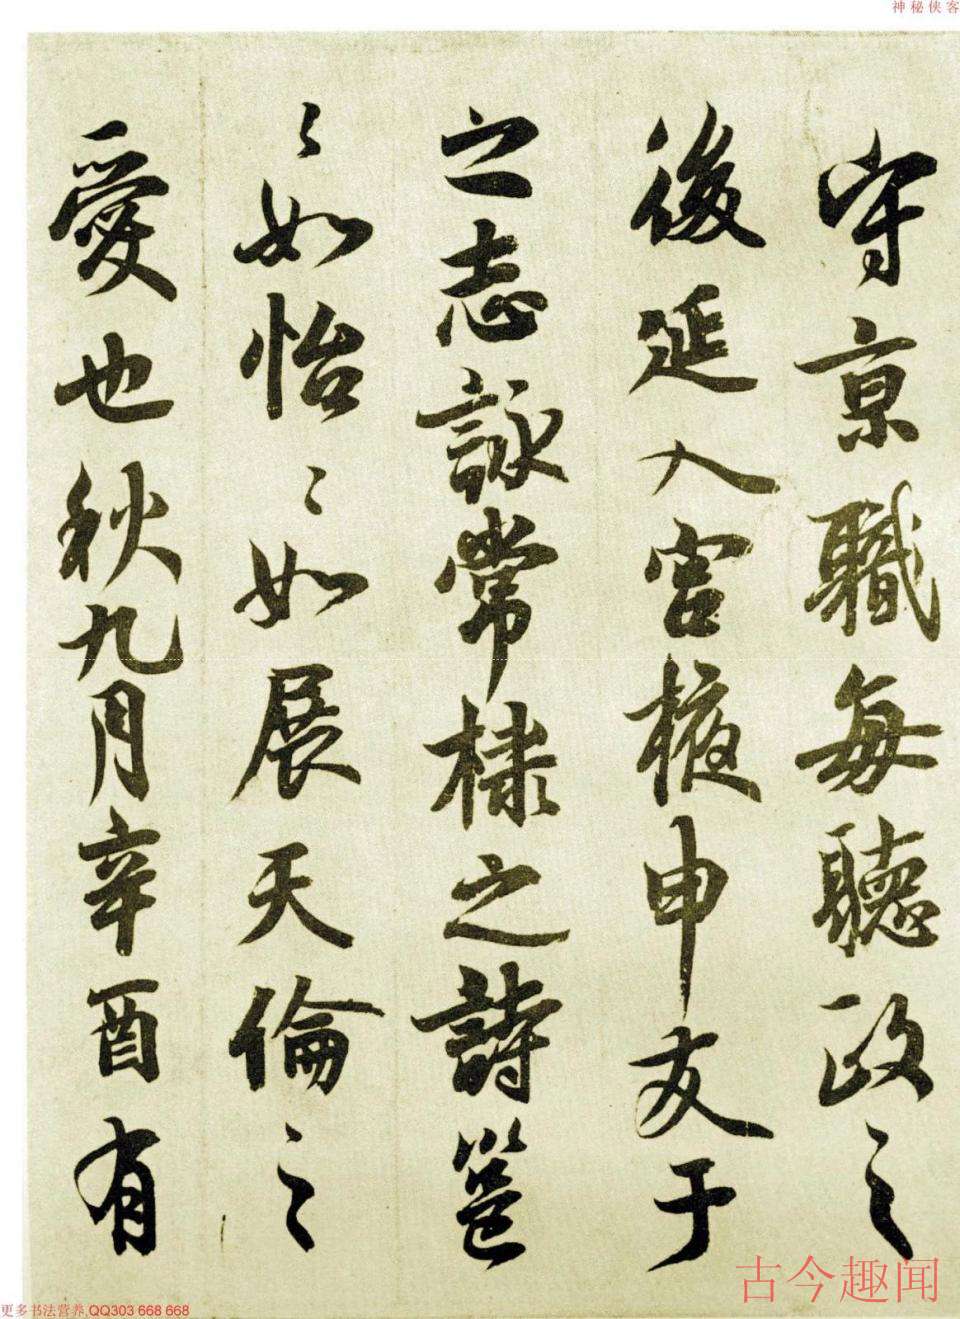 神秘侠客
守京職每聽政之
後延入宮掖申友于
之志詠常棣之詩邕
〻如怡〻如展天倫之
愛也秋九月辛酉有
古今趣闻
更多书法营养,QQ303 668 668